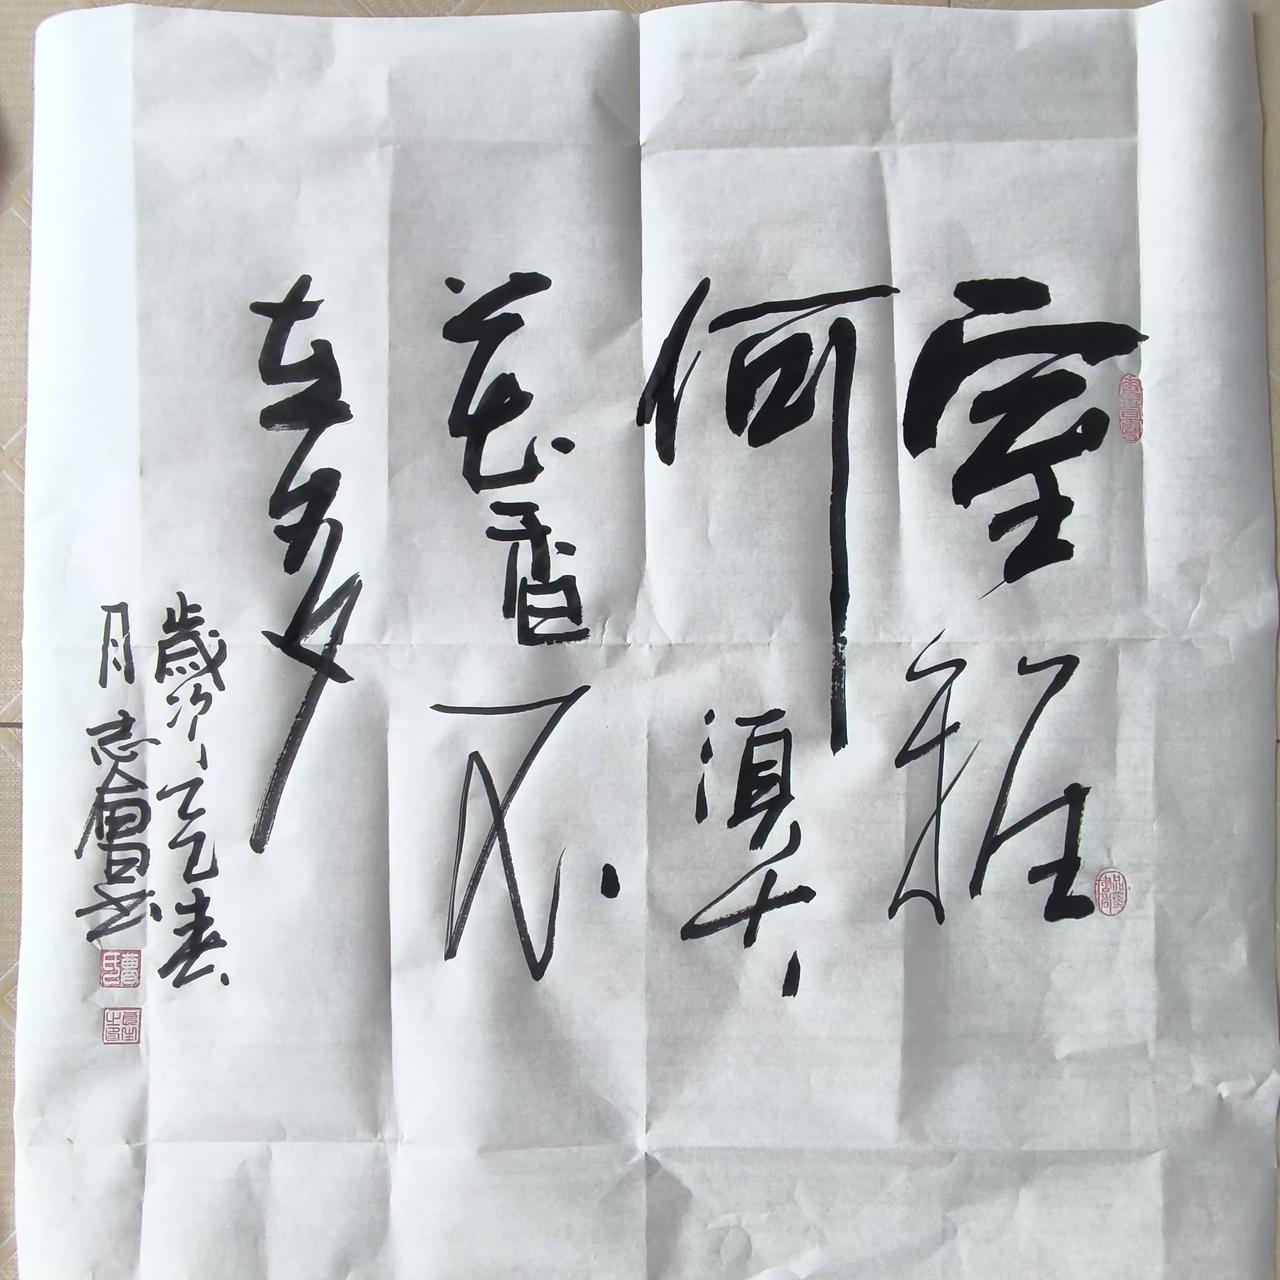 室雅
何須大
花香不
在多
歲次乙巳春
月志會書
曹氏